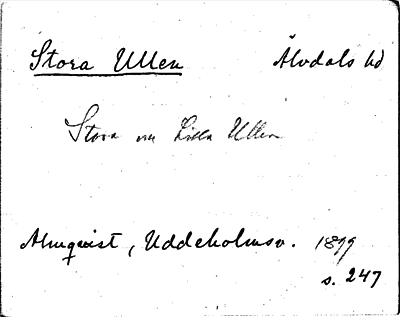 Stora Ullen Älvdals hd
Stora och Lilla Ullen
Almquist, Uddeholmsv. 1899
s. 247